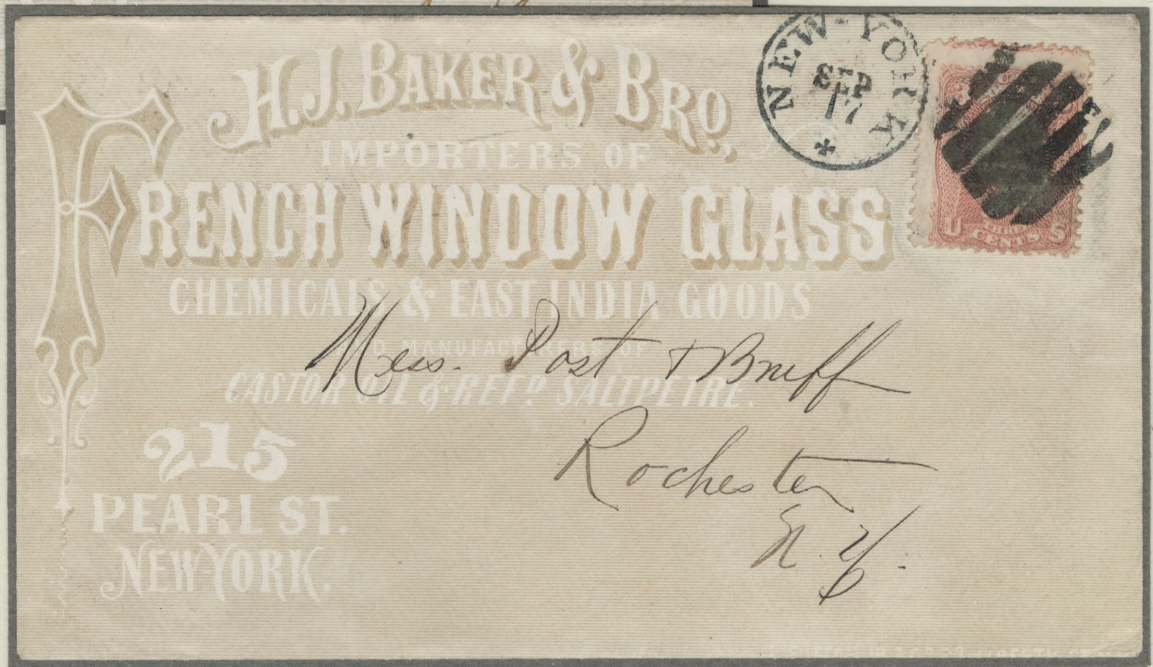 H.J. BAKER & BRO.,
IMPORTERS OF
FRENCH WINDOW GLASS
CHEMICALS & EAST INDIA GOODS
MANUFACTURERS OF
CASTOR OIL & REFD. SALTPETRE.
215
PEARL ST.
NEW-YORK.
NEW-YORK
SEP
17
U THREE S
CENTS
Mess. Post & Bruff
Rochester
N.Y.